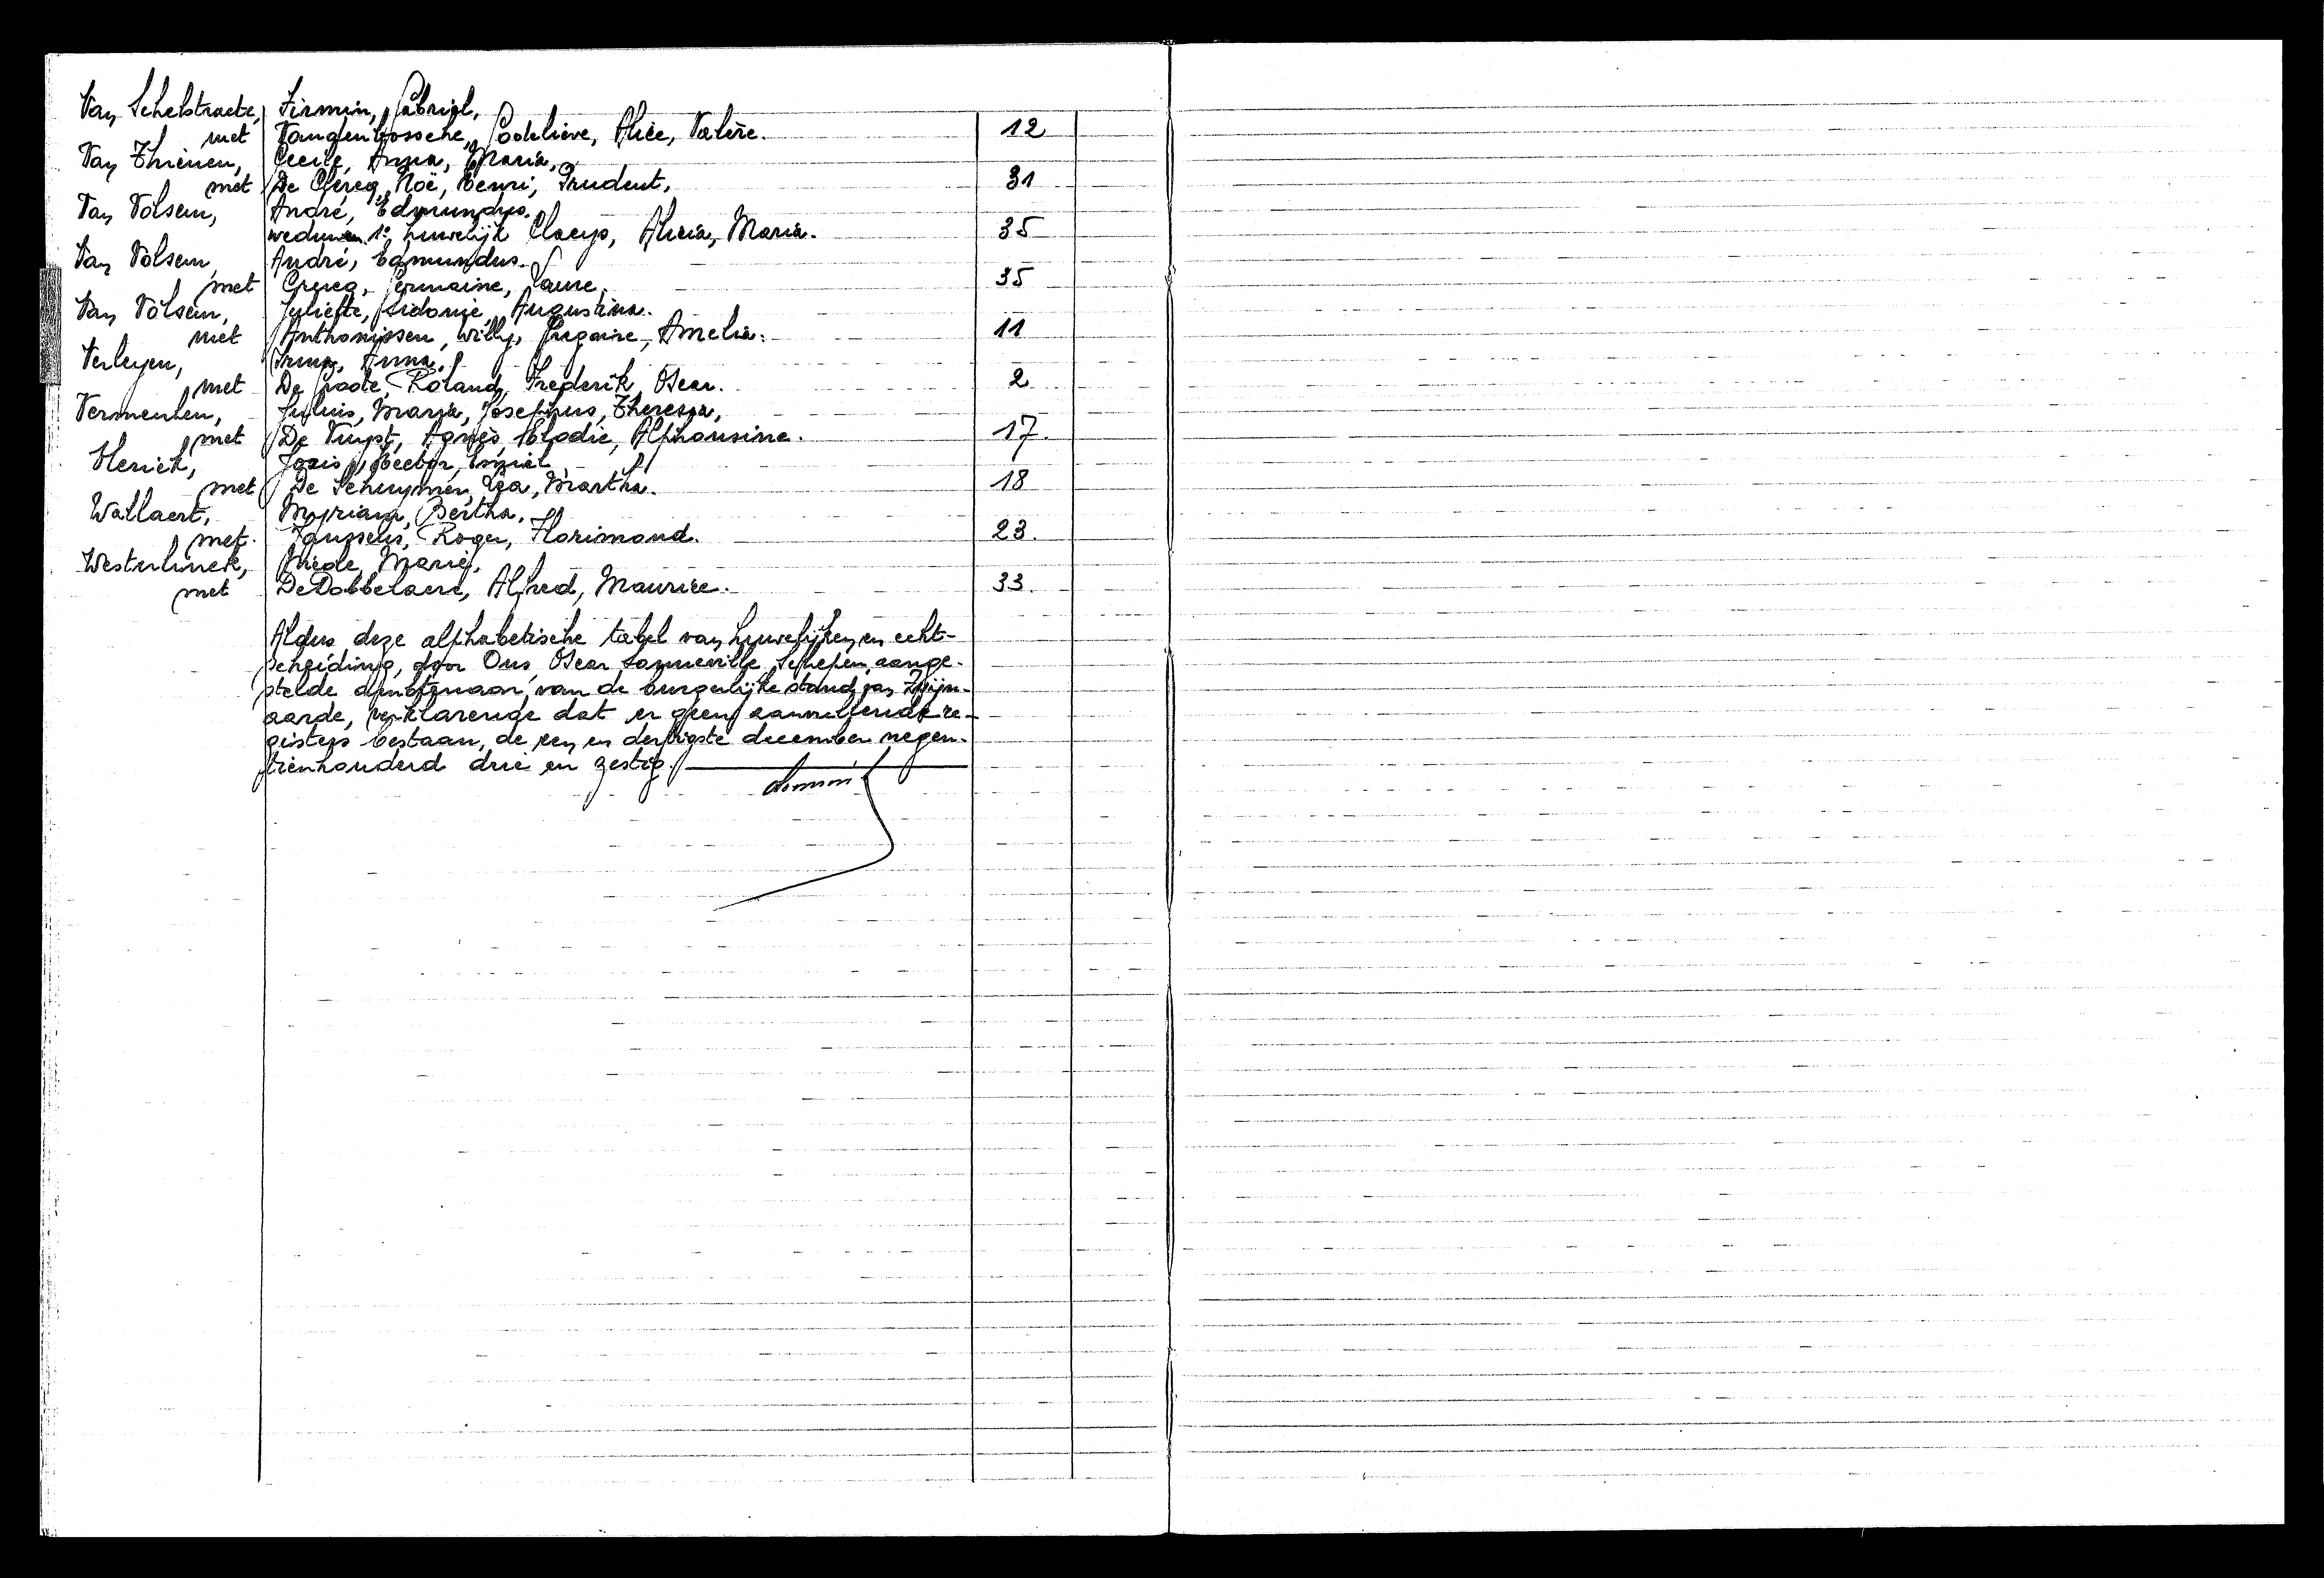 Van Schelstraete, Firmin, Gabriël,
met Vangenbossche, Godelieve, Alice, Valère. 12
Van Thienen, Cecile, Anna, Maria,
met De Clercq, Noë, Henri, Prudent, 31
Van Volsem, André, Edmundus.
weduwn. 1e huwelijk Claeys, Alicia, Maria. 35
Van Volsem, André, Edmundus.
met Germaine, Laure. 35
Van Volsem, Juliette, Sidonie, Augustina.
met Anthonissen, Willy, Gregoire, Amelia. 11
Verleyen, Irma, Anna,
met De Groote, Roland, Frederik, Oscar. 2
Vermeulen, Julius, Maria, Josephus, Theresia,
met De Vuyst, Agnès, Elodie, Alphonsine. 17.
Vlerick, Joris, Hector, Emiel
met De Schuymer, Martha. 18
Wallaert, Myriam, Bertha,
met Janssens, Roger, Florimond. 23.
Westerlinck, Marie,
met De Dobbelaere, Alfred, Maurice. 33.
Aldus deze alphabetische tabel van huwelijken en echt-
scheiding, door Ons, Oscar Sonneville, Schepen, aange-
stelde ambtenaar van de burgerlijke stand van Zwijn-
aarde, verklarende dat er geen aanvullende re-
gisters bestaan, de een en dertigste december negen-
tienhonderd drie en zestig.